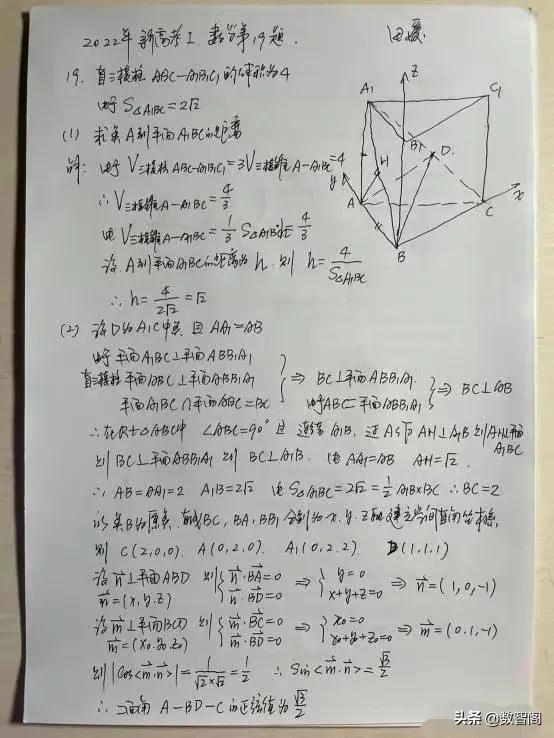 2022年新高考I 数学第19题.
19. 直三棱柱 ABC-A₁B₁C₁的体积为4
由于 S△A₁BC=2√2
(1) 求点A到平面A₁BC的距离
解: 由于 V三棱柱ABC-A₁B₁C₁=3V三棱锥A-A₁BC=4
∴V三棱锥A-A₁BC=4/3
由V三棱锥A-A₁BC=1/3 S△A₁BC·h=4/3
设A到平面A₁BC的距离为h, 则 h=4/S△A₁BC
∴h=4/2√2=√2
(2) 设D为A₁C中点 且 AA₁=AB
由于 平面A₁BC⊥平面ABB₁A₁
直三棱柱 平面ABC⊥平面ABB₁A₁
平面A₁BC∩平面ABC=BC
⇒ BC⊥平面ABB₁A₁
由于AB⊂平面ABB₁A₁
⇒ BC⊥AB
∴在Rt△ABC中 ∠ABC=90° 连结A₁B, 过A作 AH⊥A₁B 则AH⊥平面A₁BC
则 BC⊥平面ABB₁A₁ 则 BC⊥A₁B. 由AA₁=AB AH=√2
∴ AB=AA₁=2 A₁B=2√2 由S△A₁BC=2√2=1/2 A₁B×BC ∴BC=2
以点B为原点, 直线BC, BA, BB₁分别为x, y, z轴建立空间直角坐标系,
则 C(2,0,0). A(0,2,0). A₁(0,2,2). D(1,1,1)
设 n⊥平面ABD 则 {n·BA=0 n·BD=0 ⇒ {y=0 x+y+z=0 ⇒ n=(1,0,-1)
n=(x,y,z)
设 m⊥平面BCD 则 {m·BC=0 m·BD=0 ⇒ {x₀=0 x₀+y₀+z₀=0 ⇒ m=(0,1,-1)
m=(x₀,y₀,z₀)
则 |cos<m·n>|=1/√2×√2=1/2 ∴ Sin<m·n>=√3/2
∴ 二面角 A-BD-C的正弦值为√3/2
A₁
z
C₁
B₁
D
H
y
A
C
x
B
头条 @数智阁